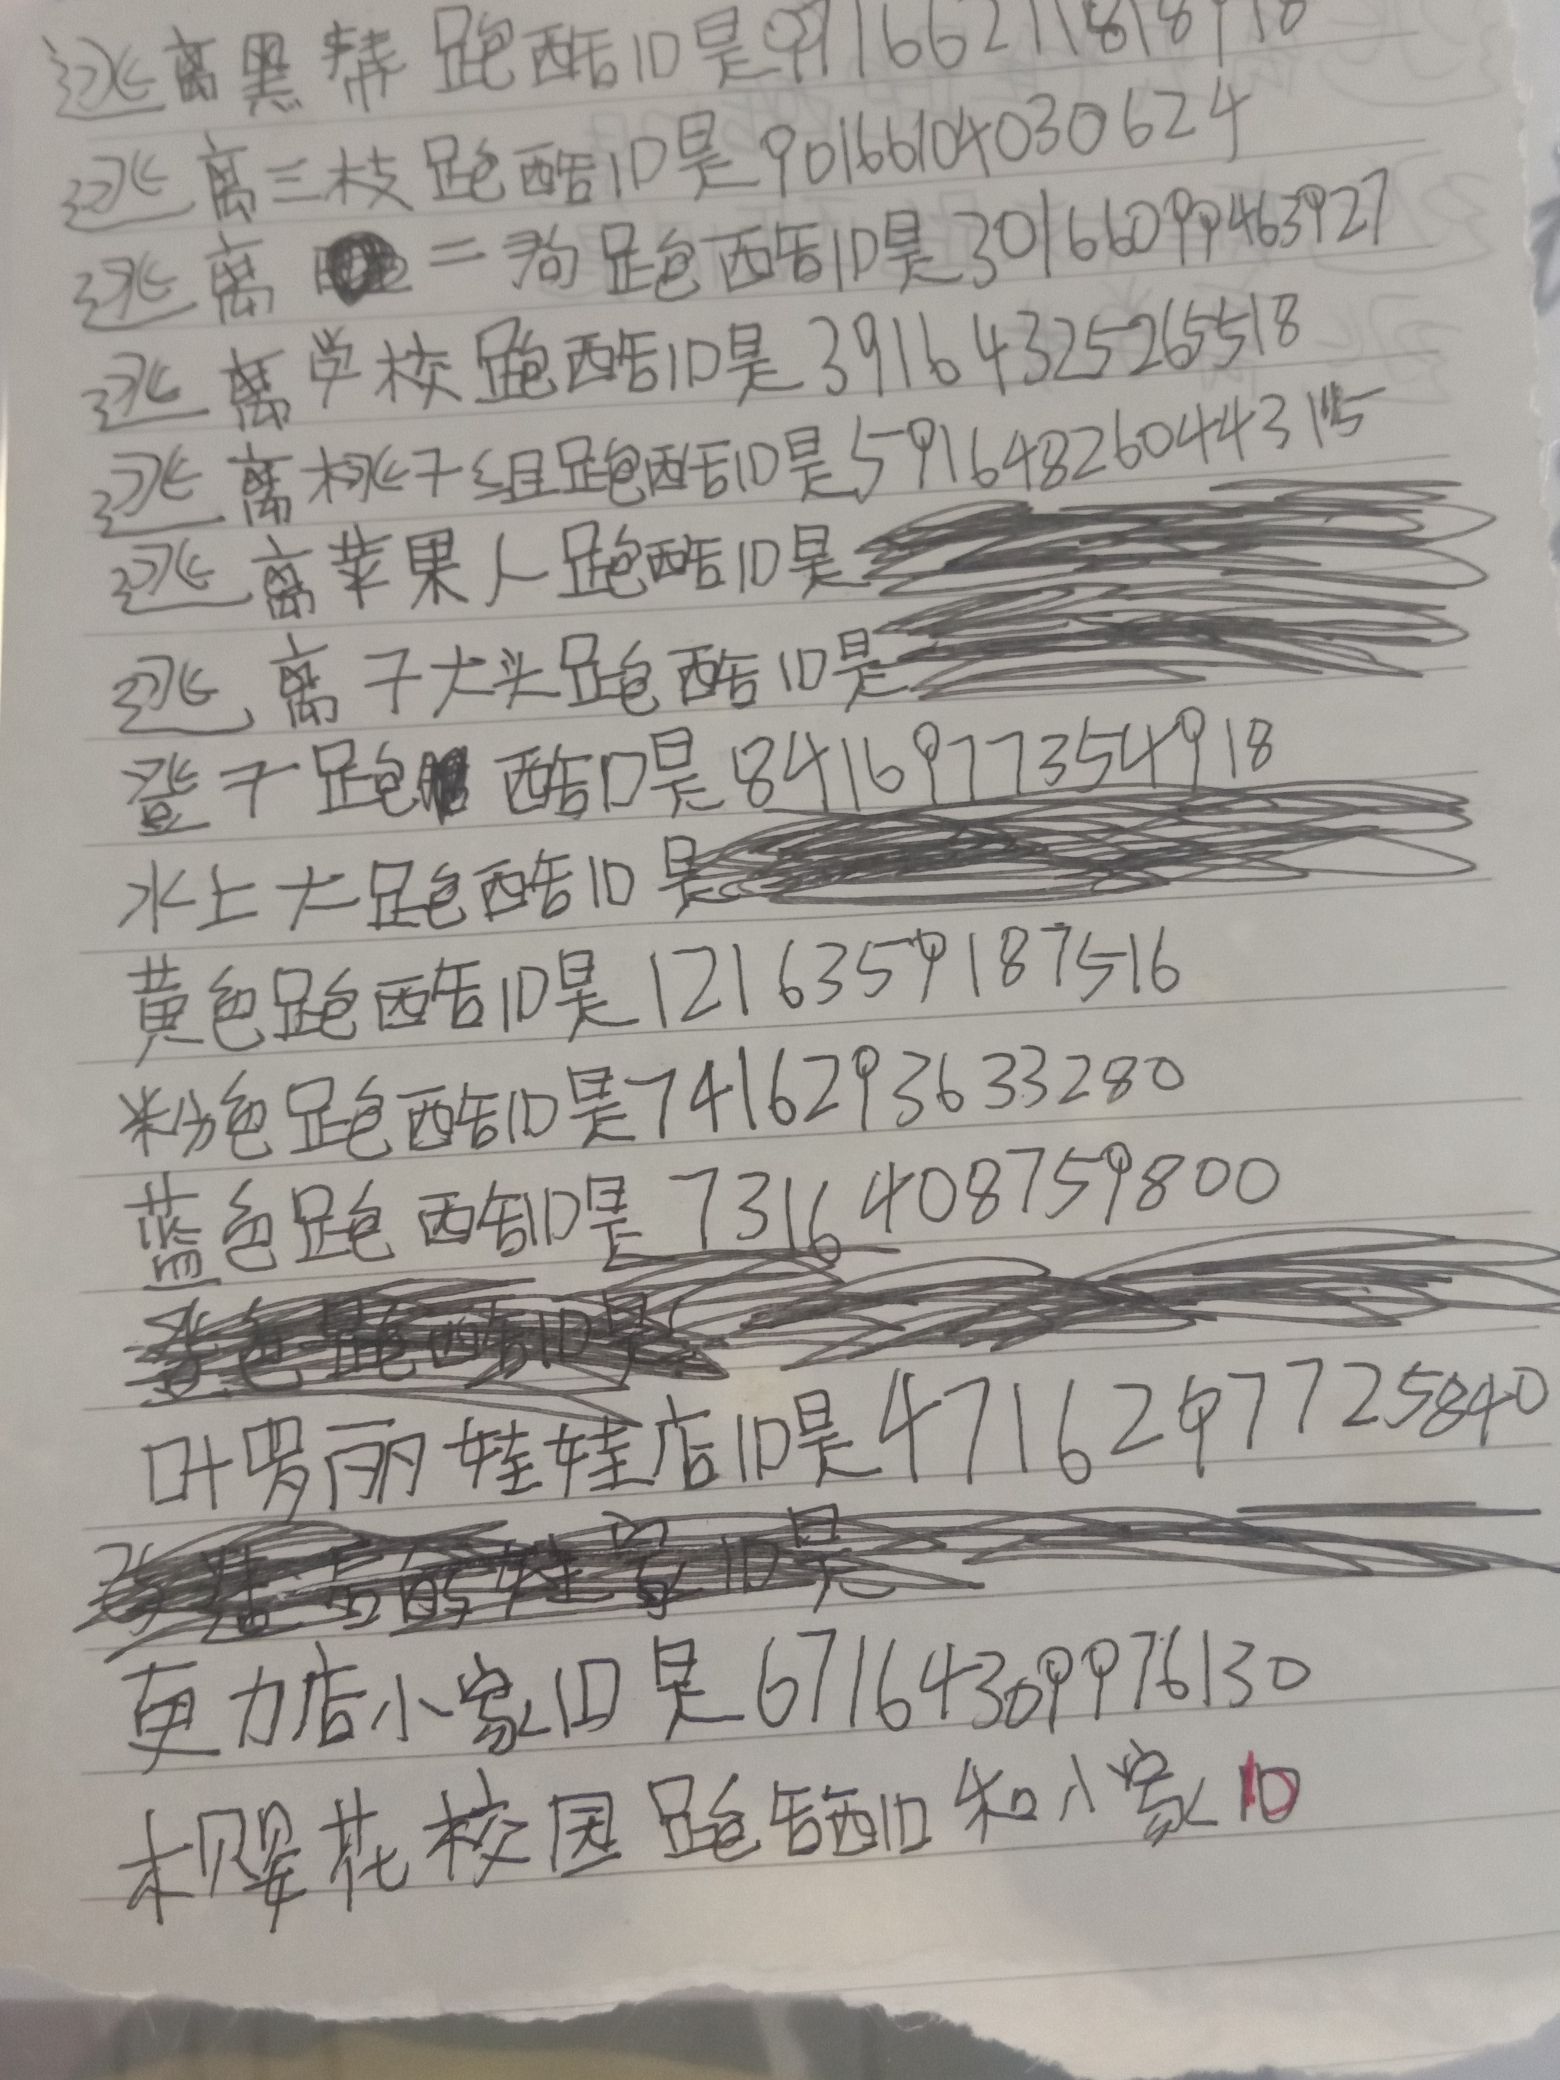 逃离黑帮跑酷ID是
逃离三枝跑酷ID是90166104030624
逃离二狗跑酷ID是30166099463927
逃离学校跑酷ID是39164325265518
逃离桃子组跑酷ID是5916482604431
逃离苹果人跑酷ID是
逃离子大头跑酷ID是
登子跑酷ID是8416977354918
水上大跑酷ID是
黄色跑酷ID是1216359187516
粉色跑酷ID是7416293633280
蓝色跑酷ID是7316408759800
叶罗丽娃娃店ID是4716297725840
更力店小家ID是67164309976130
樱花校园跑酷ID和小家ID